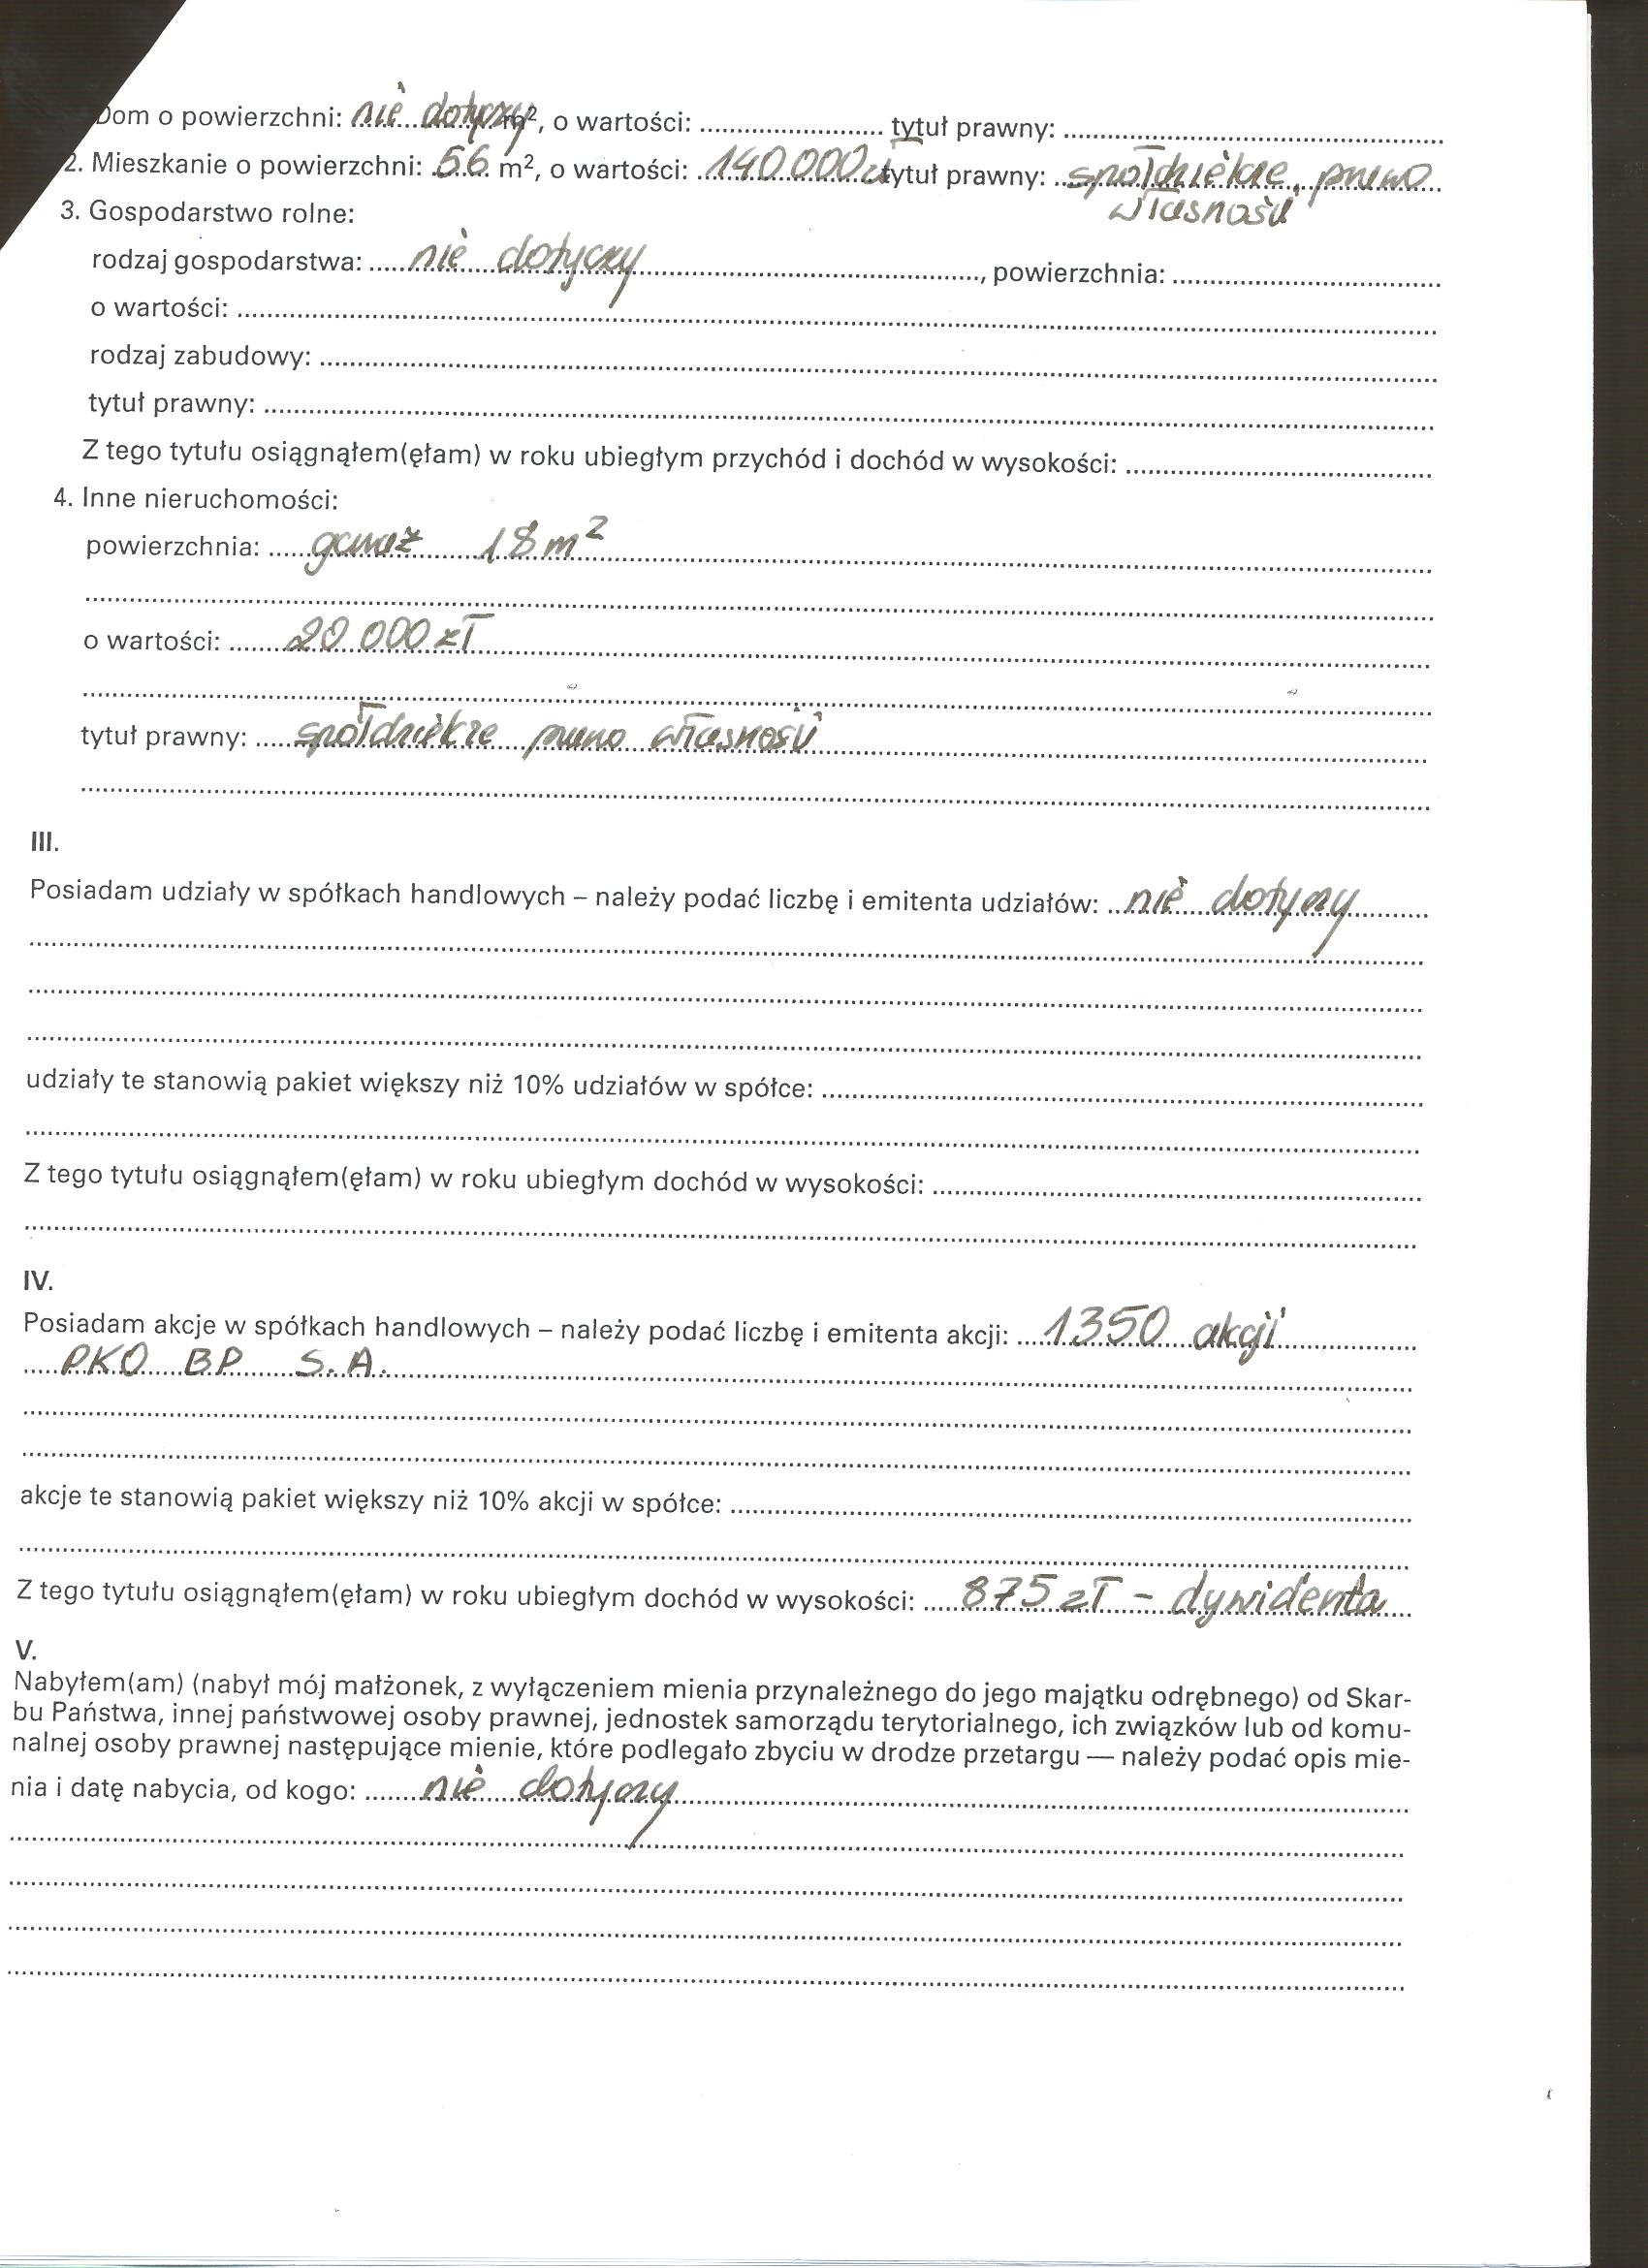 Dom o powierzchni: nie dotyczy m², o wartości: ........ tytuł prawny: ........
2. Mieszkanie o powierzchni: 56 m², o wartości: 140 000 zł tytuł prawny: spółdzielcze prawo
własności
3. Gospodarstwo rolne:
rodzaj gospodarstwa: nie dotyczy ........, powierzchnia: ........
o wartości: ........
rodzaj zabudowy: ........
tytuł prawny: ........
Z tego tytułu osiągnąłem(ęłam) w roku ubiegłym przychód i dochód w wysokości: ........
4. Inne nieruchomości:
powierzchnia: garaż 18 m²
o wartości: 20 000 zł
tytuł prawny: spółdzielcze prawo własności
III.
Posiadam udziały w spółkach handlowych – należy podać liczbę i emitenta udziałów: nie dotyczy
udziały te stanowią pakiet większy niż 10% udziałów w spółce: ........
Z tego tytułu osiągnąłem(ęłam) w roku ubiegłym dochód w wysokości: ........
IV.
Posiadam akcje w spółkach handlowych – należy podać liczbę i emitenta akcji: 1350 akcji
PKO BP S.A.
akcje te stanowią pakiet większy niż 10% akcji w spółce: ........
Z tego tytułu osiągnąłem(ęłam) w roku ubiegłym dochód w wysokości: 875 zł – dywidenta
V.
Nabyłem(am) (nabył mój małżonek, z wyłączeniem mienia przynależnego do jego majątku odrębnego) od Skar-
bu Państwa, innej państwowej osoby prawnej, jednostek samorządu terytorialnego, ich związków lub od komu-
nalnej osoby prawnej następujące mienie, które podlegało zbyciu w drodze przetargu — należy podać opis mie-
nia i datę nabycia, od kogo: nie dotyczy